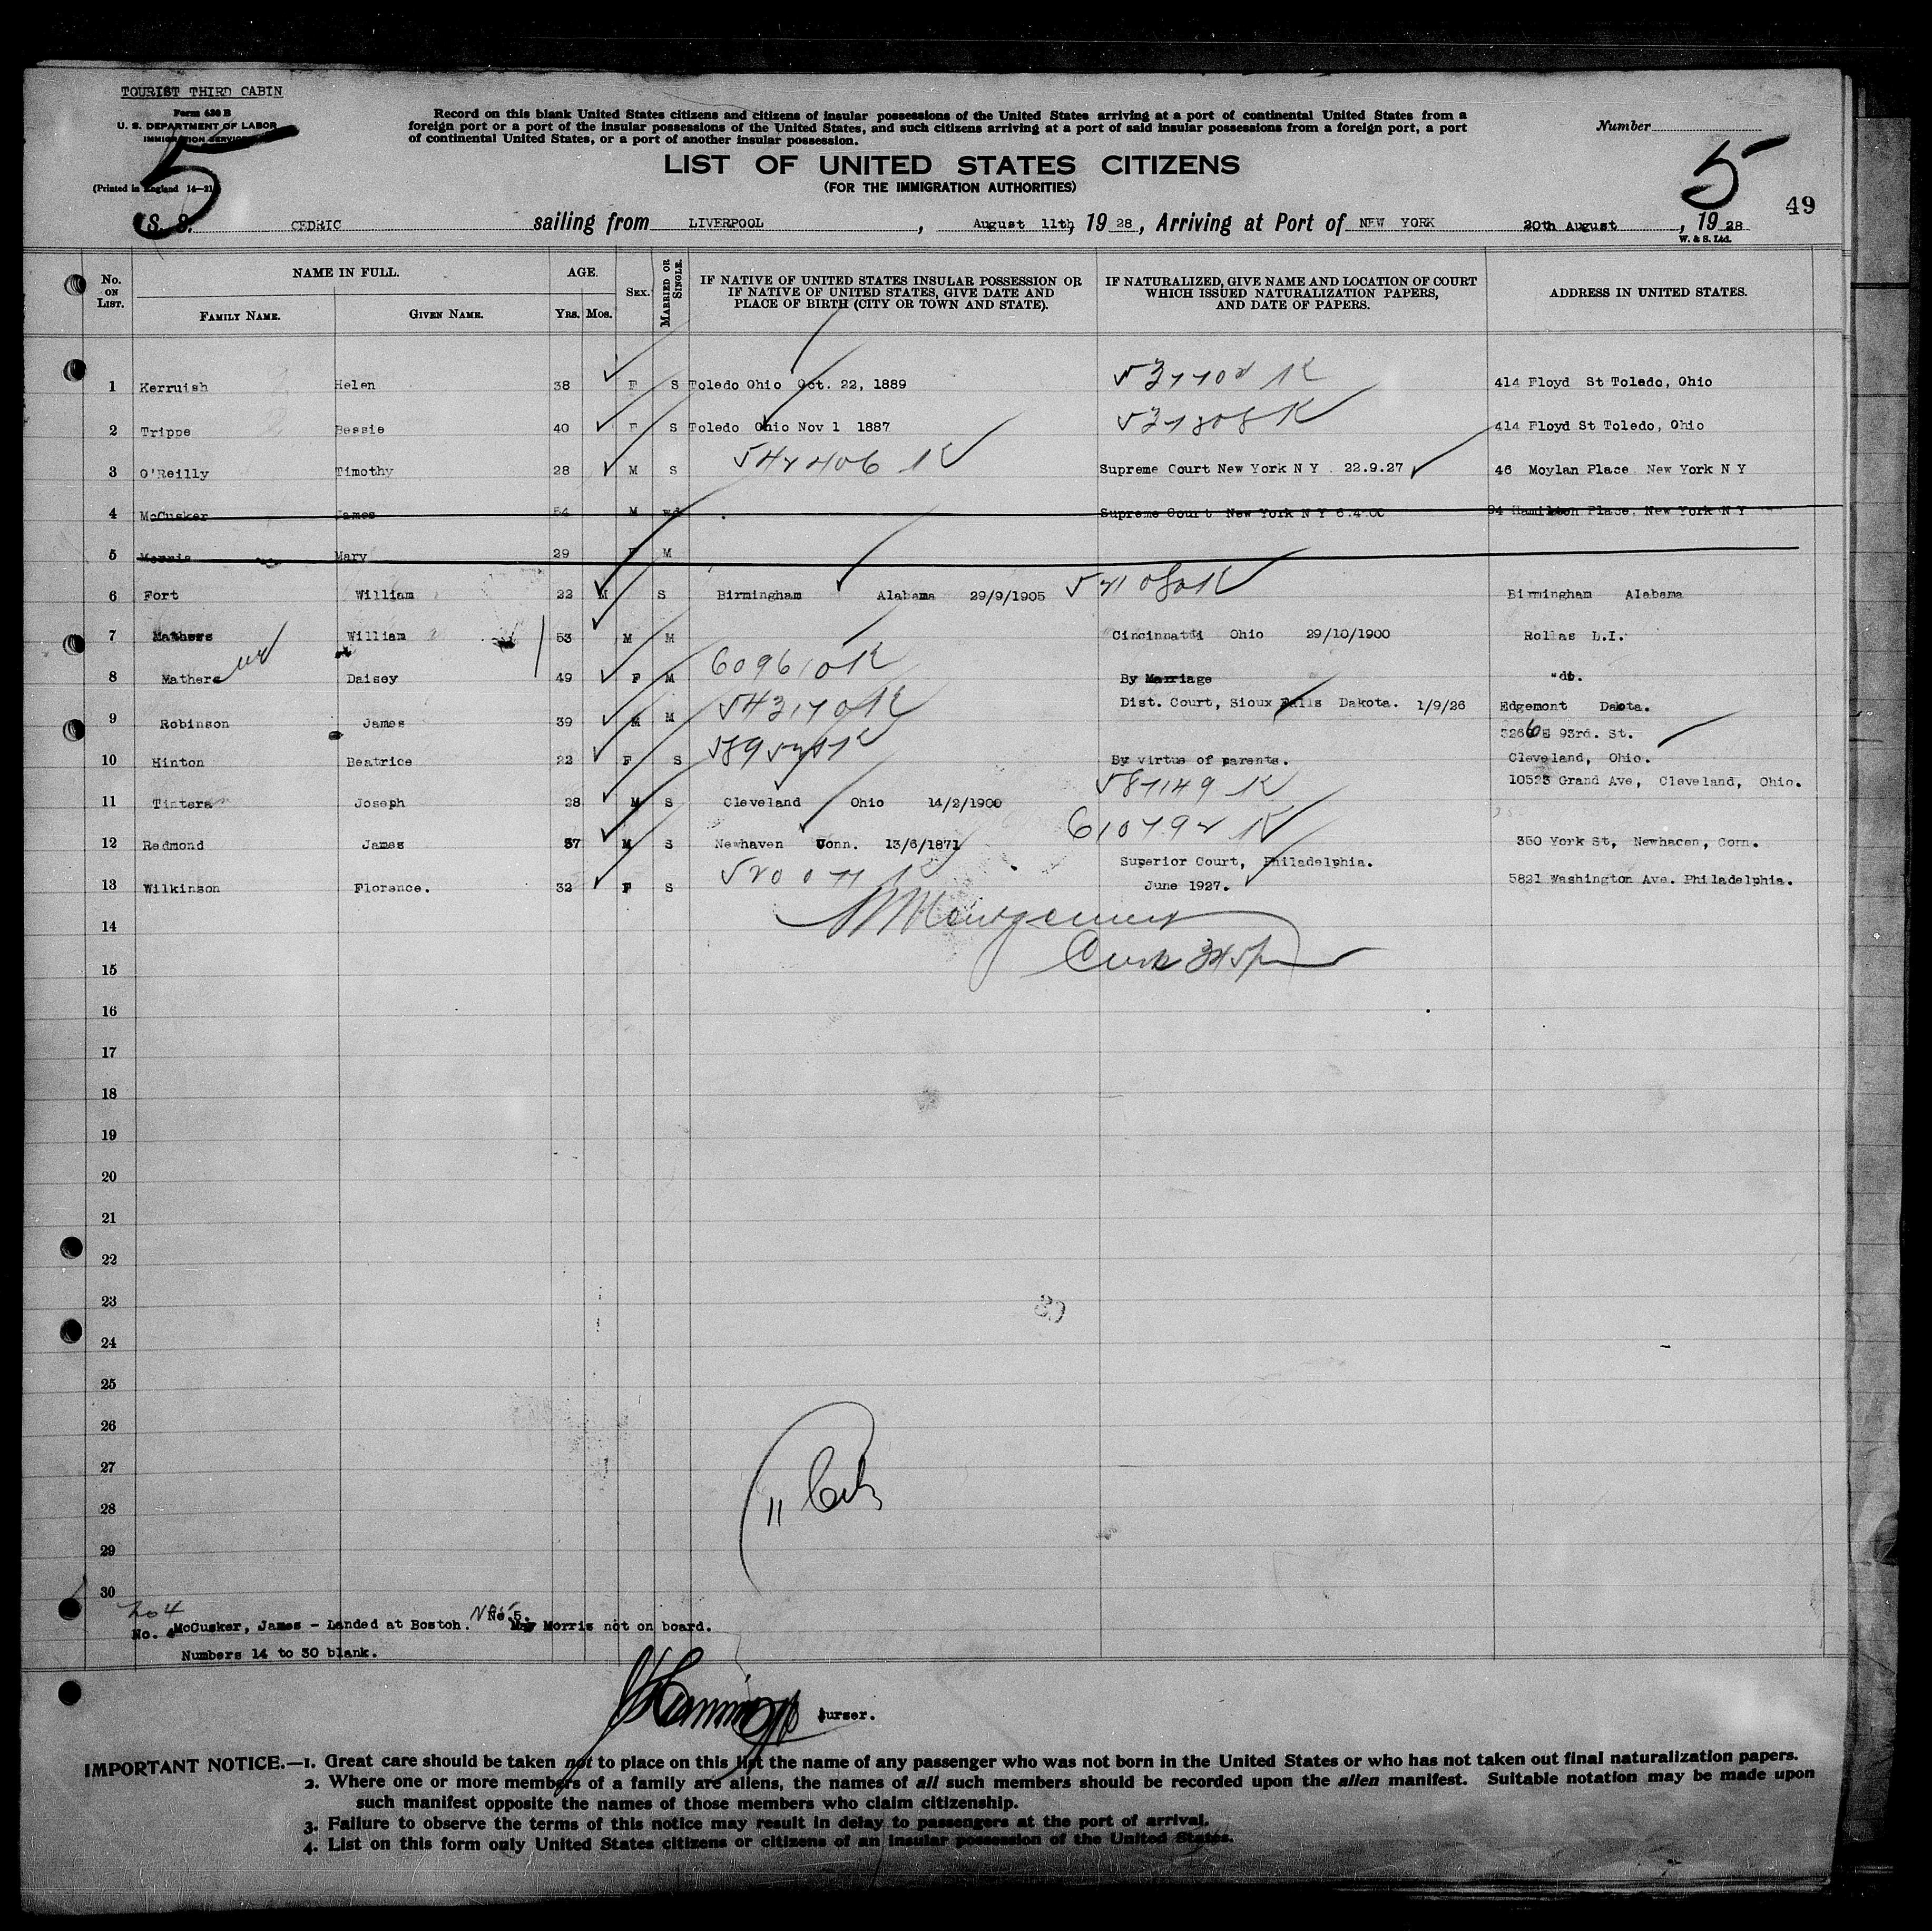 TOURIST THIRD CABIN
Form 630 B
U. S. DEPARTMENT OF LABOR
IMMIGRATION SERVICE
(Printed in England 14—21)
5
Record on this blank United States citizens and citizens of insular possessions of the United States arriving at a port of continental United States from a
foreign port or a port of the insular possessions of the United States, and such citizens arriving at a port of said insular possessions from a foreign port, a port
of continental United States, or a port of another insular possession.
Number
LIST OF UNITED STATES CITIZENS
(FOR THE IMMIGRATION AUTHORITIES)
5
49
S. S. CEDRIC sailing from LIVERPOOL, August 11th, 1928, Arriving at Port of NEW YORK 20th August, 1928
W. & S. Ltd.
No. ON LIST. NAME IN FULL. FAMILY NAME. GIVEN NAME. AGE. YRS. MOS. SEX. MARRIED OR SINGLE. IF NATIVE OF UNITED STATES INSULAR POSSESSION OR IF NATIVE OF UNITED STATES, GIVE DATE AND PLACE OF BIRTH (CITY OR TOWN AND STATE). IF NATURALIZED, GIVE NAME AND LOCATION OF COURT WHICH ISSUED NATURALIZATION PAPERS, AND DATE OF PAPERS. ADDRESS IN UNITED STATES.
1 Kerruish Helen 38 F S Toledo Ohio Oct. 22, 1889 414 Floyd St Toledo, Ohio
2 Trippe Bessie 40 F S Toledo Ohio Nov 1 1887 414 Floyd St Toledo, Ohio
3 O'Reilly Timothy 28 M S 542406 K Supreme Court New York N Y 22.9.27 46 Moylan Place New York N Y
4 McCusker James 54 M wd Supreme Court New York N Y 94 Hamilton Place, New York N Y
5 Morris Mary 29 F M
6 Fort William 22 M S Birmingham Alabama 29/9/1905 Birmingham Alabama
7 Mathers William 53 M M Cincinnatti Ohio 29/10/1900 Rollas L.I.
8 Mathers Daisey 49 F M 609610 K By Marriage "do.
9 Robinson James 39 M M 543170 K Dist. Court, Sioux Falls Dakota. 1/9/26 Edgemont Dakota.
3266 E 93rd. St.
10 Hinton Beatrice 22 F S By virtue of parents. Cleveland, Ohio.
11 Tintera Joseph 28 M S Cleveland Ohio 14/2/1900 587149 K 10523 Grand Ave, Cleveland, Ohio.
12 Redmond James 57 M S Newhaven Conn. 13/6/1871 610792 K 350 York St, Newhacen, Conn.
13 Wilkinson Florence. 32 F S Superior Court, Philadelphia. June 1927. 5821 Washington Ave. Philadelphia.
14
15
16
17
18
19
20
21
22
23
24
25
26
27
28
29
30
No. 4 McCusker, James - Landed at Boston. No 5. May Morris not on board.
Numbers 14 to 30 blank.
Purser.
IMPORTANT NOTICE.—1. Great care should be taken not to place on this list the name of any passenger who was not born in the United States or who has not taken out final naturalization papers.
2. Where one or more members of a family are aliens, the names of all such members should be recorded upon the alien manifest. Suitable notation may be made upon
such manifest opposite the names of those members who claim citizenship.
3. Failure to observe the terms of this notice may result in delay to passengers at the port of arrival.
4. List on this form only United States citizens or citizens of an insular possession of the United States.